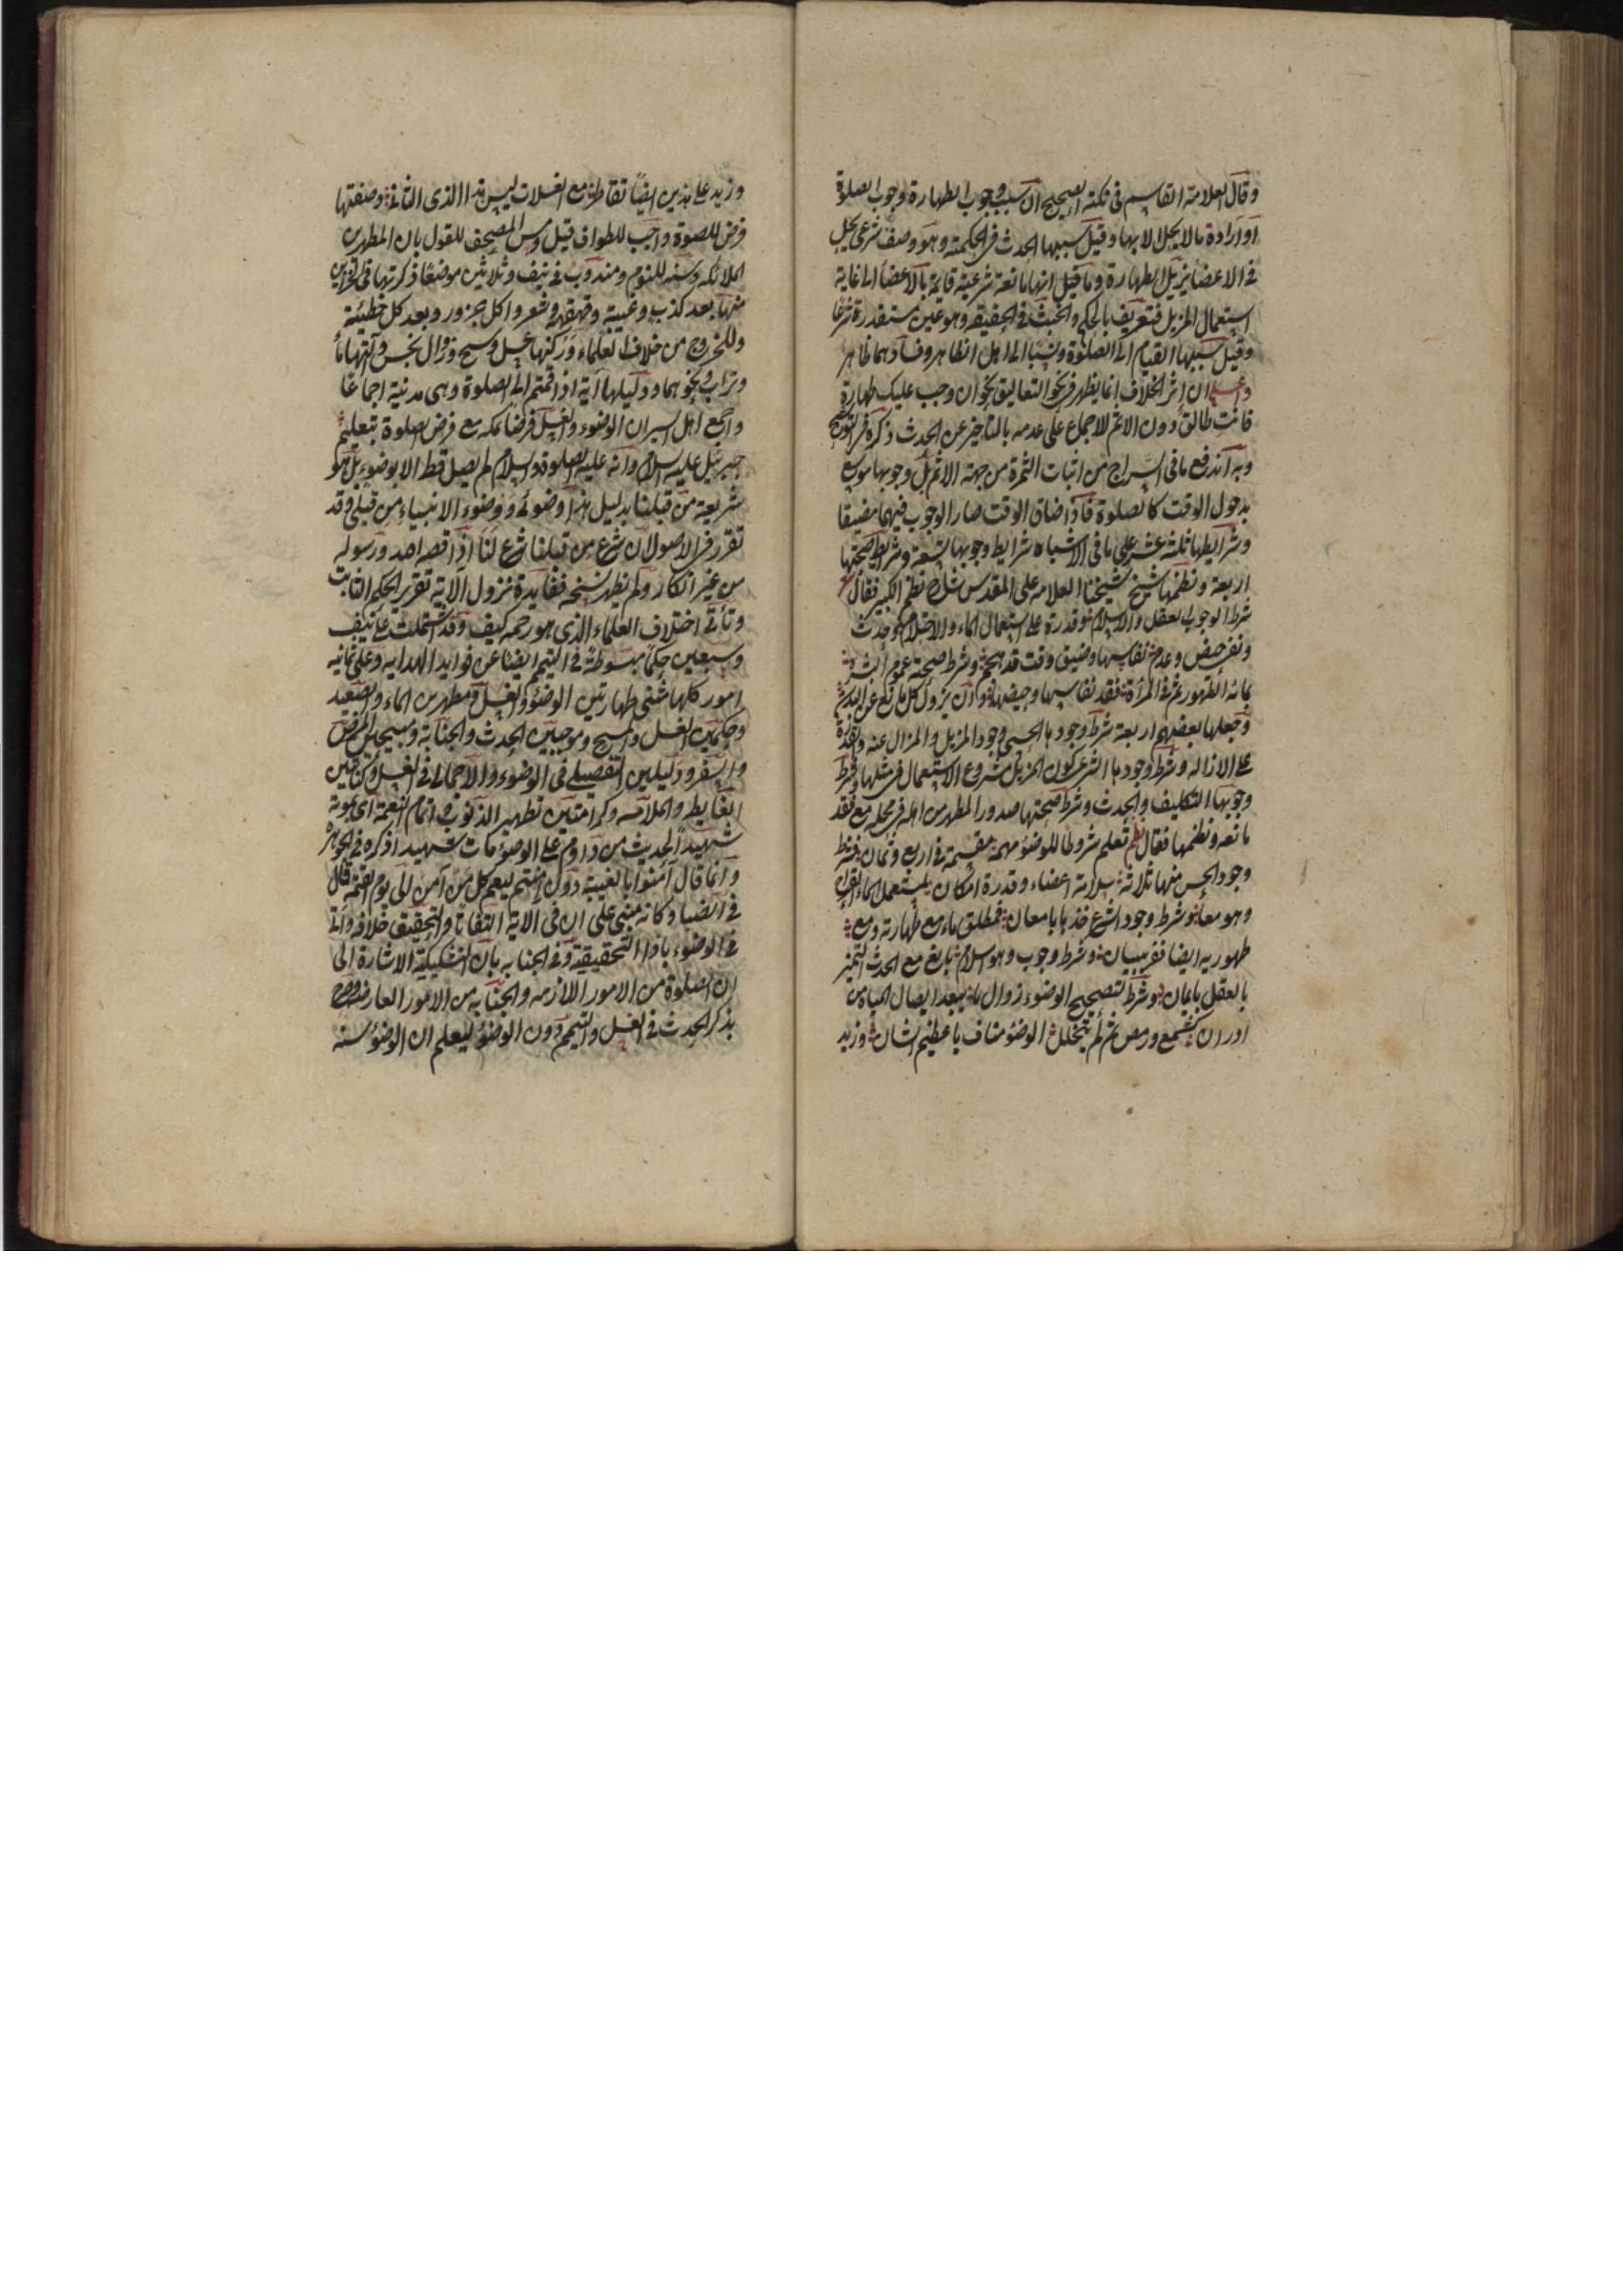 وقال العلامة القاسم في نكته الصحيح ان سبب وجوب الطهارة وجوب الصلوة
او ارادة مالا يحل الا بها وقيل سببها الحدث في الحكمية وهو وصف شرعي يحل
في الاعضا يزيل الطهارة وما قيل انها مانعة شرعية قايمة بالاعضا الى غاية
استعمال المزيل فتعريف بالحكم والخبث في الحقيقه وهو عين مستقذرة شرعا
وقيل سببها القيام الى الصلوة ونسبا الى اهل الظاهر وفسادهما ظاهر
واعلم ان اثر الخلاف انما يظهر في نحو التعاليق نحو ان وجب عليك طهارة
فانت طالق دون الاثم للاجماع على عدمه بالتاخير عن الحدث ذكره في التوشيح
وبه اندفع ما في السراج من اثبات الثمرة من جهة الاثم بل وجوبها موسع
بدخول الوقت كالصلوة فاذا ضاق الوقت صار الوجوب فيهما مضيقا
وشرايطها ثلثة عشر على ما في الاشباه شرايط وجوبها تسعة وشرايط صحتها
اربعة ونظمها شيخ شيخنا العلامه علي المقدسي شارح نظم الكنز فقال
شرط الوجوب العقل والاسلام وقدرة على استعمال الماء والاحتلام وحدث
ونفي حيض وعدم نفاسها وضيق وقت قد هجم وشرط صحة عموم البشرة
بمائه الطهور ثم في المرأة فقد نفاسها وحيضها وان يزول كل مانع عن البدن
وجعلها بعضهم اربعة شرط وجودها الحسي وجود المزيل والمزال عنه والقدرة
على الازاله وشرط وجودها الشرعي كون المزيل مشروع الاستعمال في مثلها وشرط
وجوبها التكليف والحدث وشرط صحتها صدور المطهر من اهله في محله مع فقد
مانعه ونظمها فقال نظم تعلم شروطا للوضوء مهمة مقسمة في اربع وثمان فشرط
وجود الحس منها ثلاثة سلامة اعضاء وقدرة امكان لمستعمل الماء القراح
وهو معا وشرط وجود الشرع خذها بامعان فمطلق ماء مع طهارته ومع
طهوريه ايضا ففز ببيان وشرط وجوب وهو اسلام بالغ مع الحدث التمييز
بالعقل يا عان وشرط لتصحيح الوضوء زوال ما يبعد ايصال المياه من
ادران كشمع ورمص ثم لم يتخلل الوضوء مناف يا عظيم الشان وزيد
وزيد على هذين ايضا تقاطر مع الغسلات ليس ذا الذي الثاني وصفتها
فرض للصلوة واجب للطواف قيل ومس المصحف للقول بان المطهرين
الملائكه وسنه للنوم ومندوب في نيف وثلاثين موضعا ذكرتها في الخزاين
منها بعد كذب وغيبة وقهقهه وشعر واكل جزور وبعد كل خطيئة
وللخروج من خلاف العلماء وركنها غسل ومسح وزوال نجس وآلتها ماء
وتراب ونحوهما ودليلها آية اذا قمتم الى الصلوة وهي مدنية اجماعا
واجمع اهل السير ان الوضوء والغسل فرضا بمكه مع فرض الصلوة بتعليم
جبريل عليه السلام وانه عليه الصلوة والسلام لم يصل قط الا بوضوء بل هو
شريعة من قبلنا بدليل هذا وضوئي ووضوء الانبياء من قبلي وقد
تقرر في الاصول ان شرع من قبلنا شرع لنا اذا قصه الله ورسوله
من غير انكار ولم يظهر نسخه ففايدة نزول الاية تقرير الحكم الثابت
وتأتي اختلاف العلماء الذي هو رحمه كيف وقد اشتملت على نيف
وسبعين حكما مبسوطة في التيمم ايضا عن فوايد الهدايه وعلى ثمانيه
امور كلها مثنى طهارتين الوضوء والغسل ومطهرين الماء والصعيد
وحكمين الغسل والمسح وموجبين الحدث والجنابة ومبيحين المرض
والسفر ودليلين التفصيلي في الوضوء والاجمالي في الغسل وكنايتين
الغايط والملامسه وكرامتين تطهير الذنوب واتمام النعمة اي بموته
شهيدا لحديث من داوم على الوضوء مات شهيدا ذكره في الجوهره
وانما قال آمنوا بالغيبة دون امنتم ليعم كل من آمن الى يوم القيمة قاله
في الضيا وكانه مبني على ان في الاية التفاتا والتحقيق خلافه واتى
في الوضوء باذا التحقيقية وفي الجنابه بان التشكيكية للاشارة الى
ان الصلوة من الامور اللازمه والجنابه من الامور العارضه وصرح
بذكر الحدث في الغسل والتيمم دون الوضوء ليعلم ان الوضوء سنه